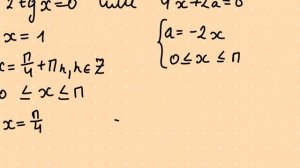 2tgx=0 или 4x+2a=0
x = 1
x = π/4 + πn, n∈Z
0 ≤ x ≤ π
x = π/4
{ a = -2x
0 ≤ x ≤ π